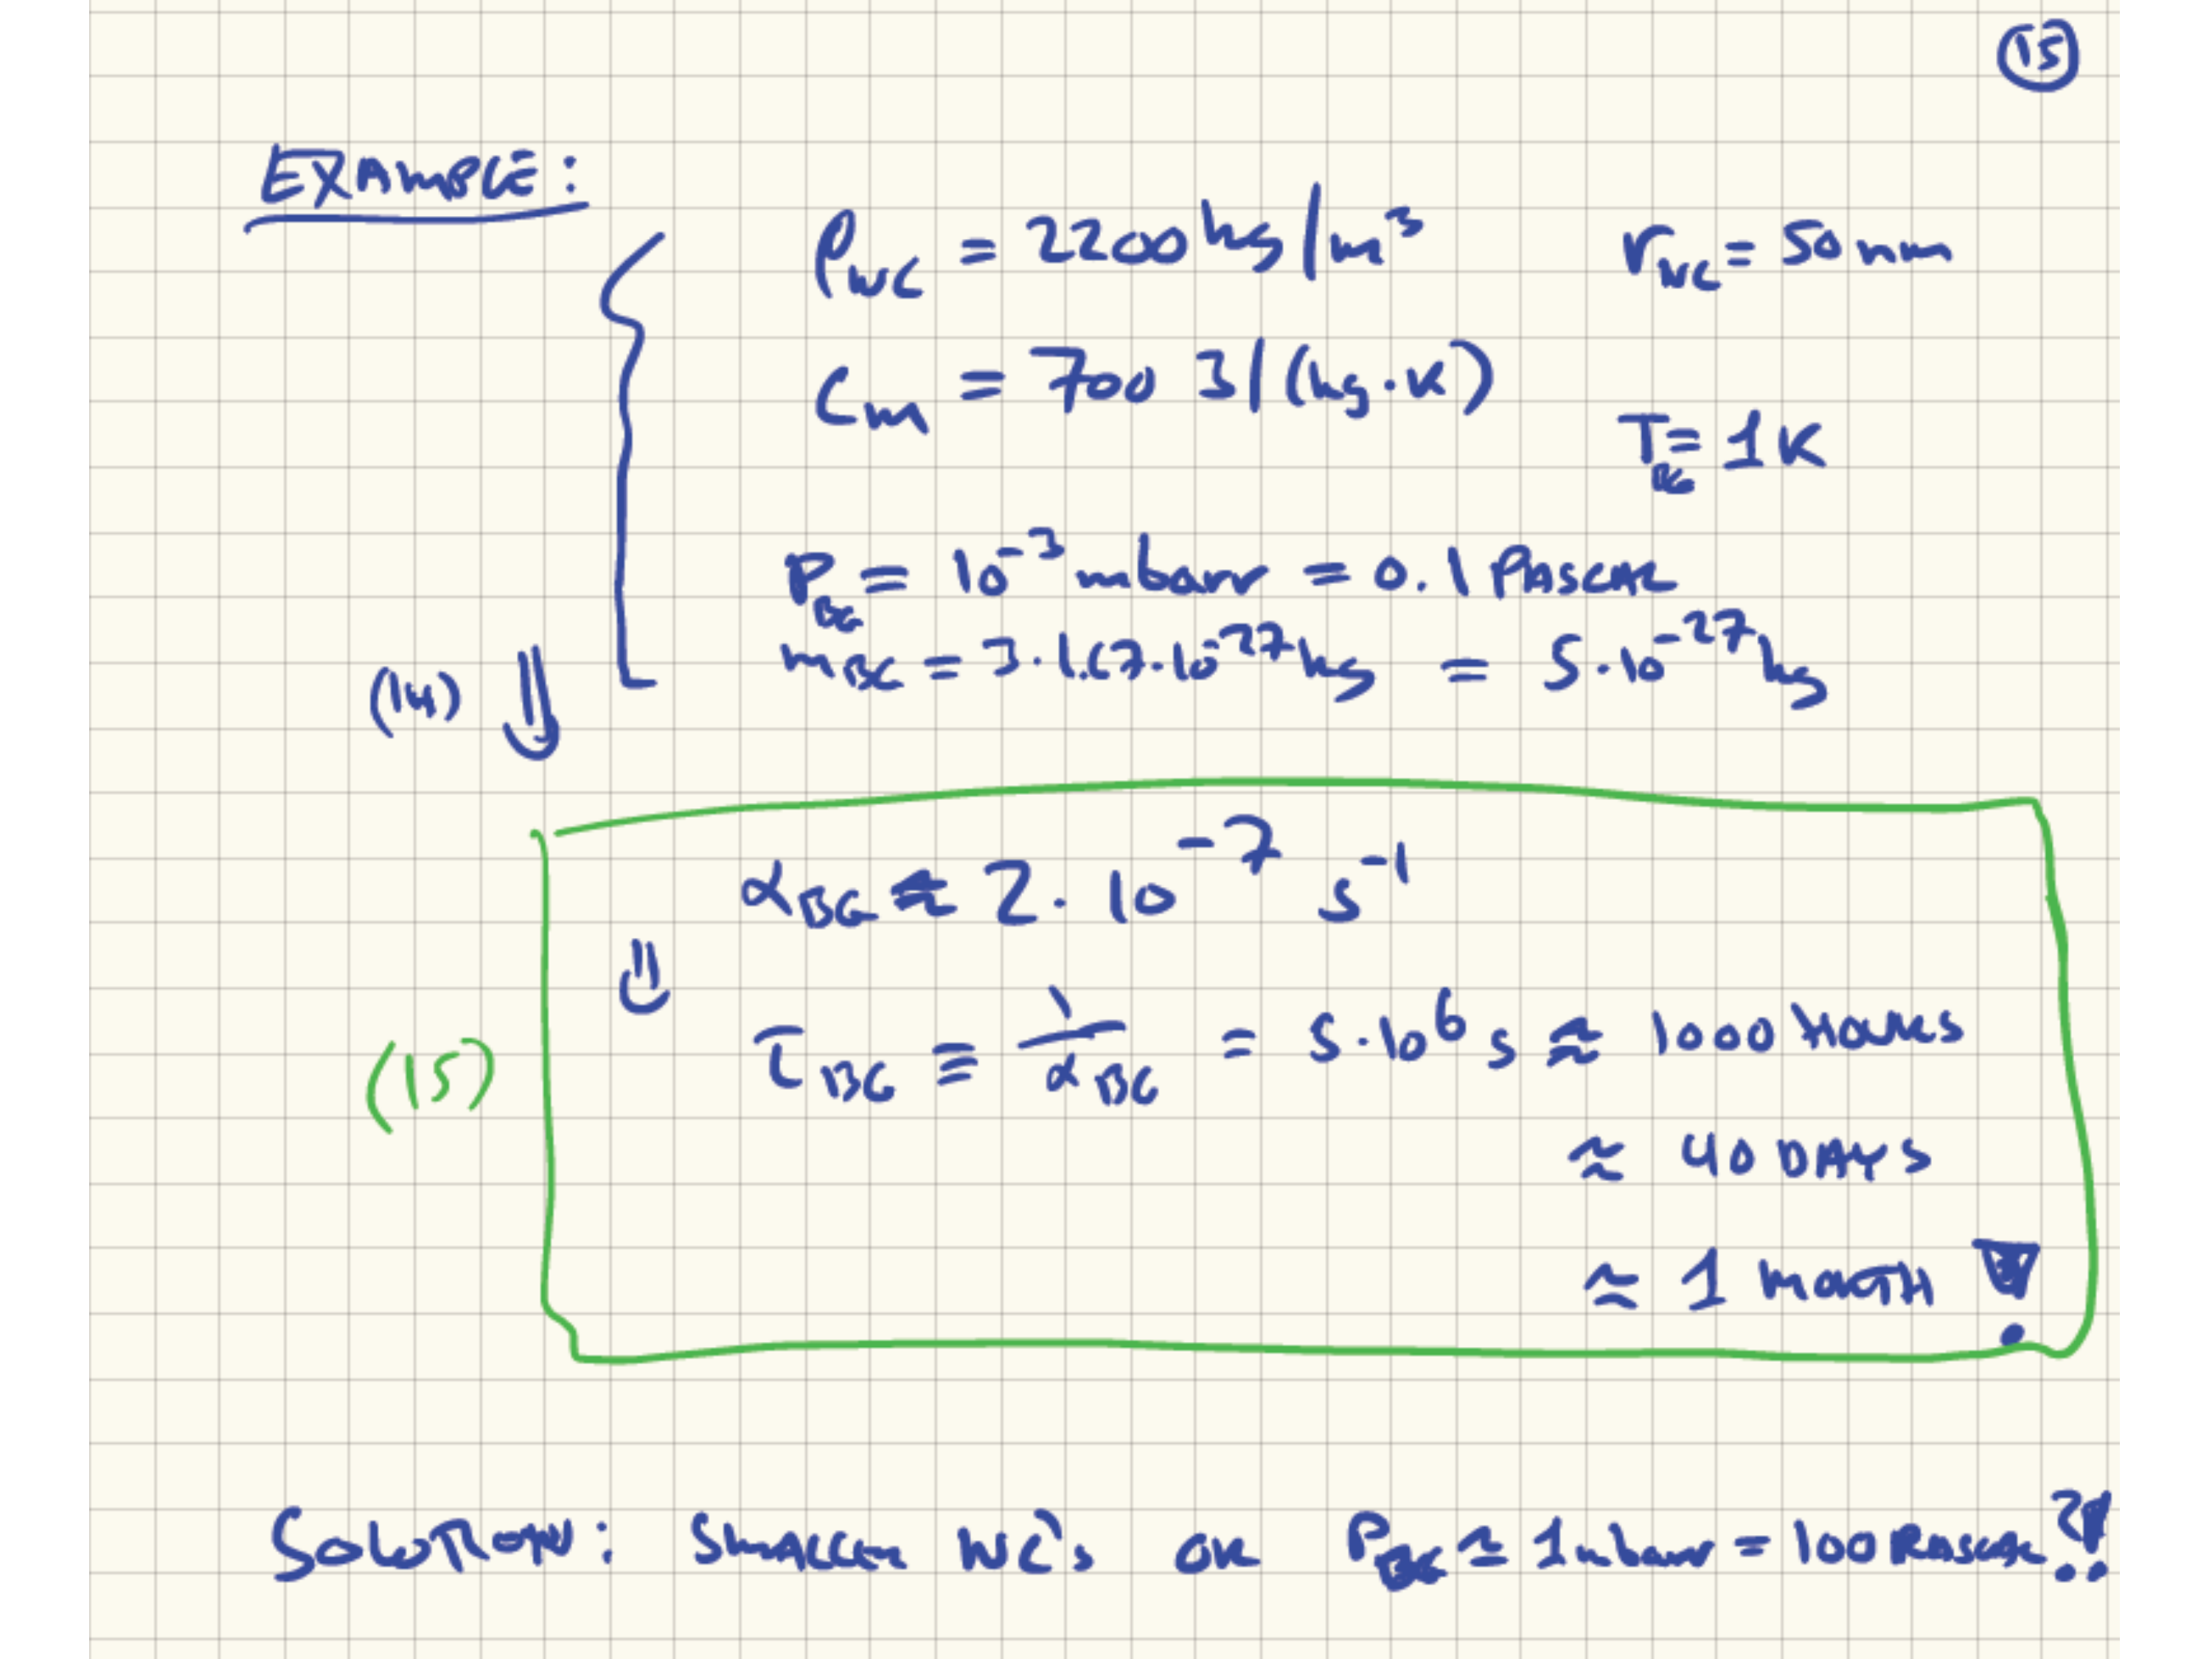 (15)
EXAMPLE:
ρ_NC = 2200 kg/m³ r_NC = 50 nm
C_m = 700 J/(kg·K)
T_BG = 1K
P_BG = 10⁻³ mbar = 0.1 PASCAL
m_BG = 3·1.67·10⁻²⁷ kg = 5·10⁻²⁷ kg
(14) ⇓
α_BG ≈ 2·10⁻⁷ s⁻¹
⇓
(15) τ_BG ≡ 1/α_BG = 5·10⁶ s ≈ 1000 HOURS
≈ 40 DAYS
≈ 1 MONTH !
SOLUTION: SMALLER NC's OR P_BG ≃ 1 mbar = 100 PASCAL ?!